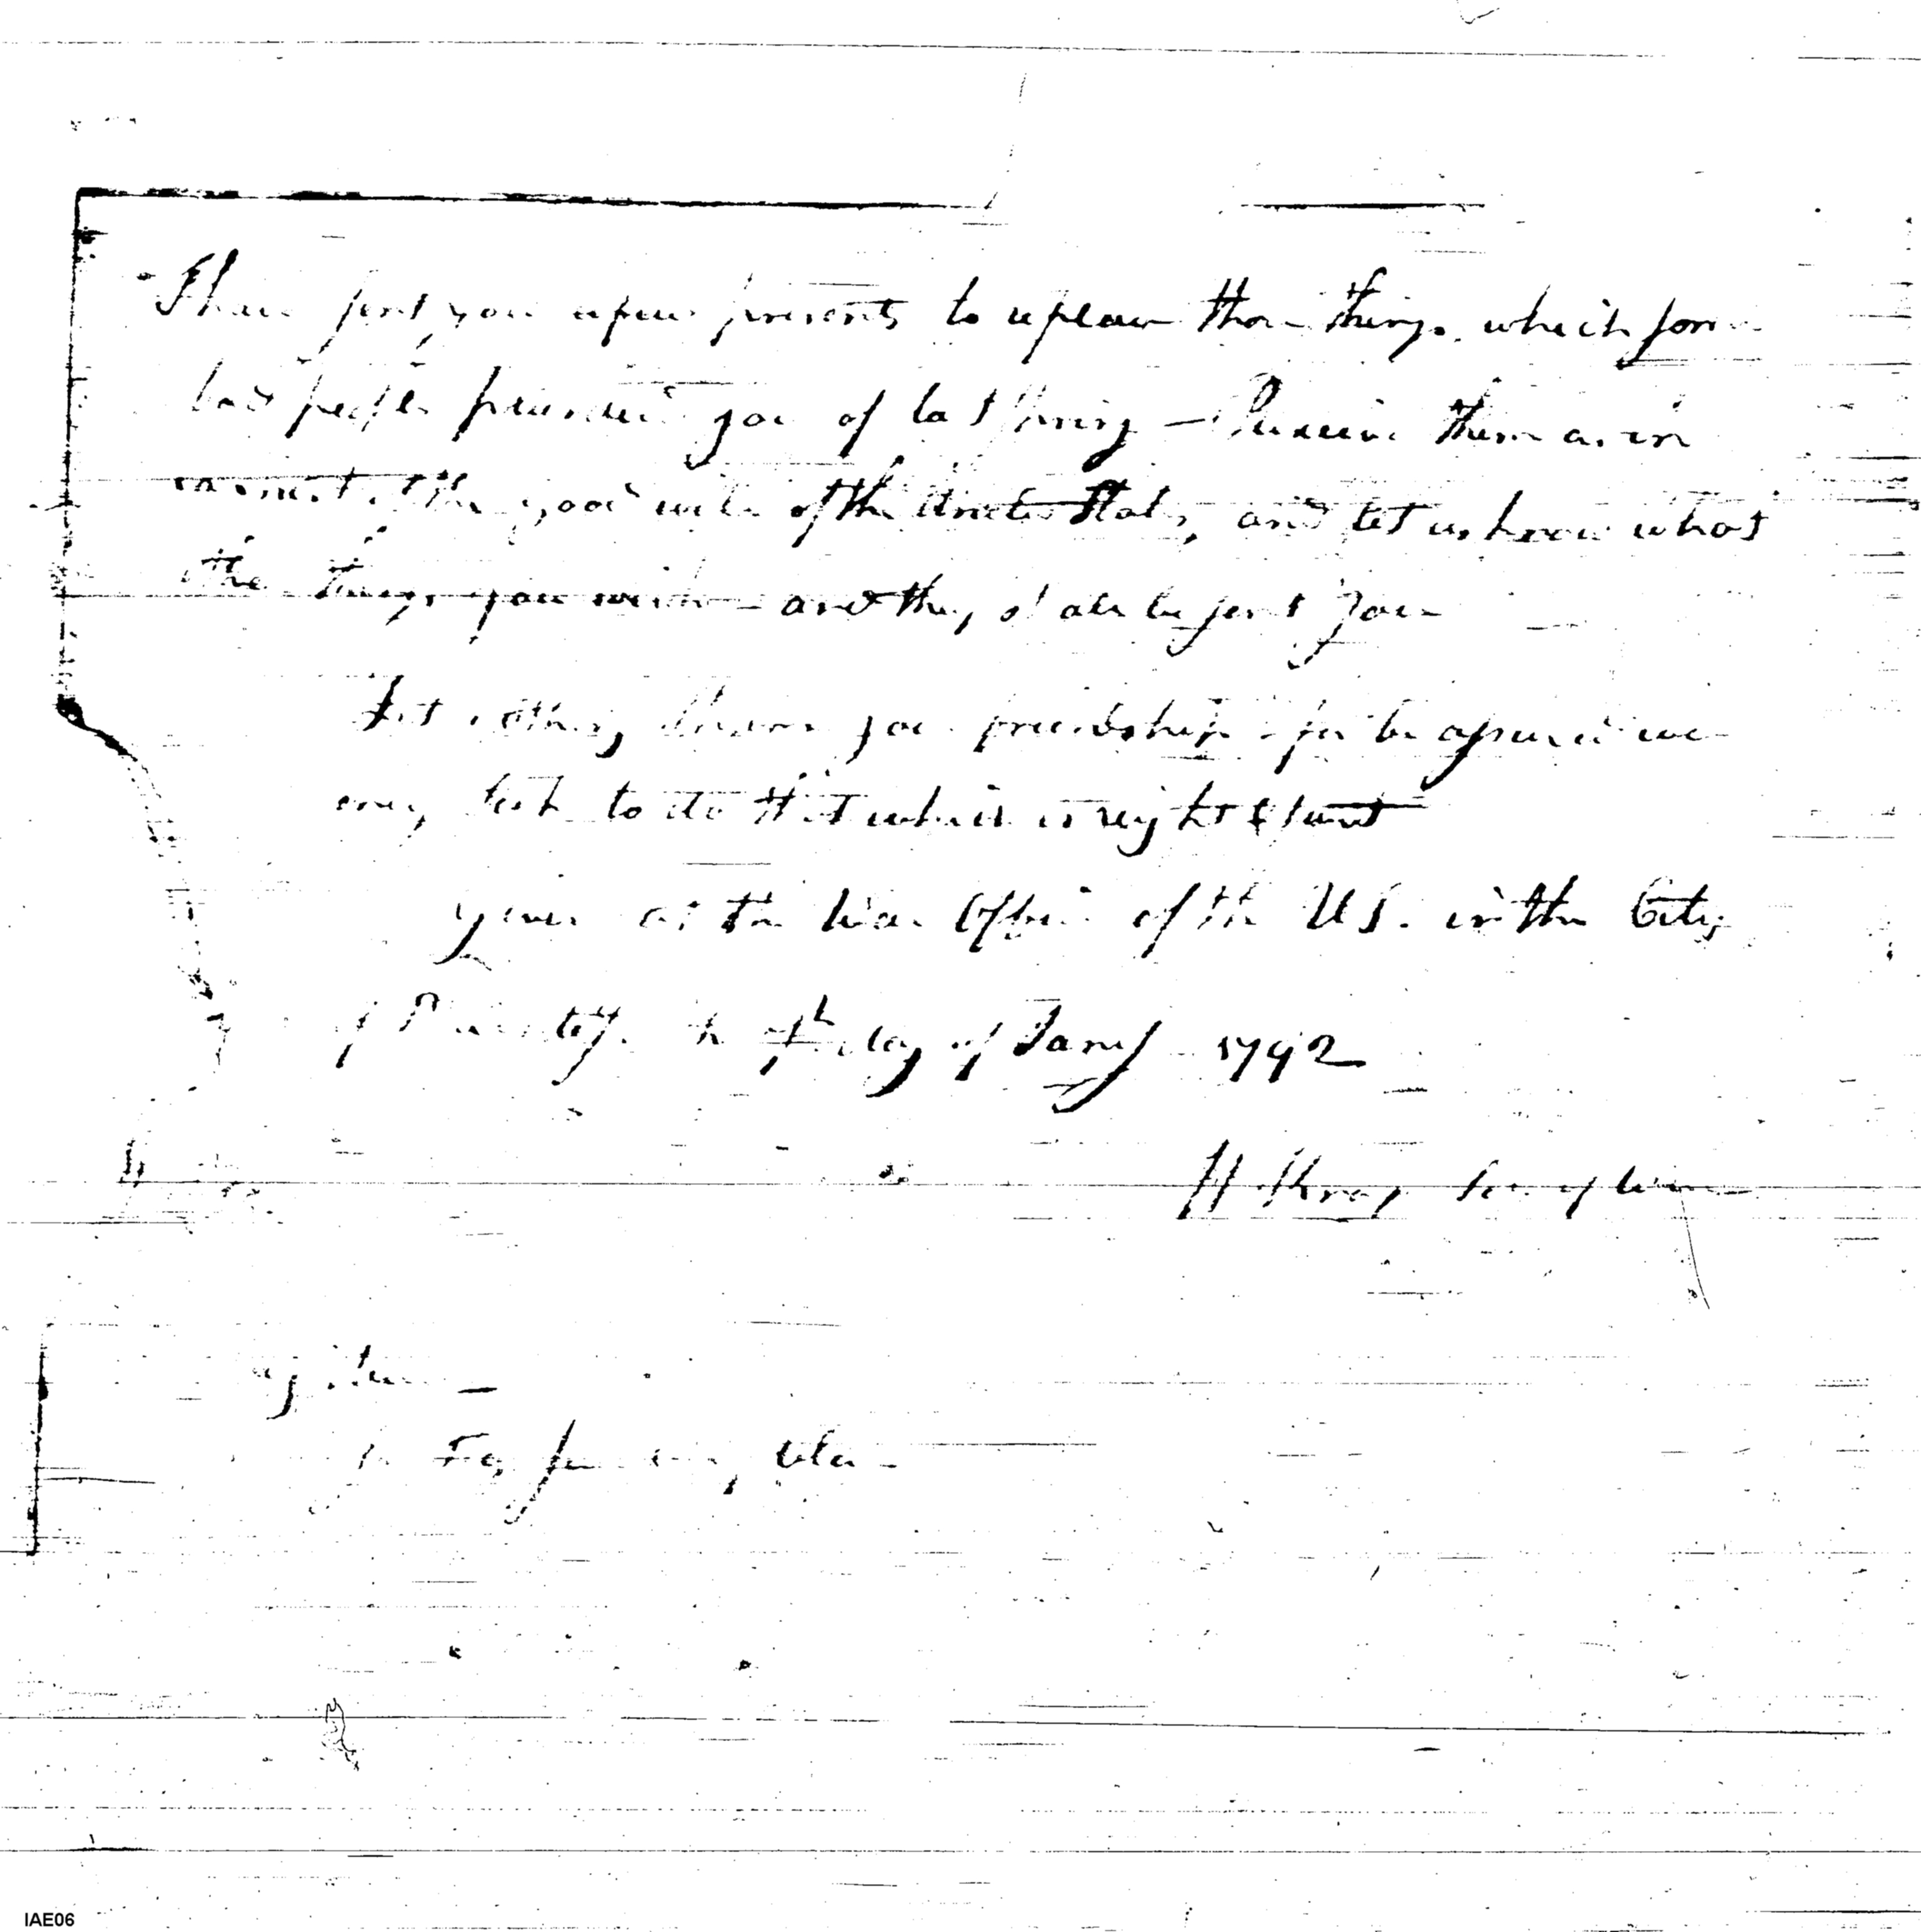 I have sent you a few presents to replace those things which some
bad people plundered you of last spring — Receive them as an
earnest of the good will of the United States, and let us know what
other things you wish — and they shall be sent you
Let nothing shake your friendship for be assured we
only seek to do that which is right & just
given at the War Office of the U S. in the City
of the 7th day of Jany 1792
H Knox Secy of War
IAE06